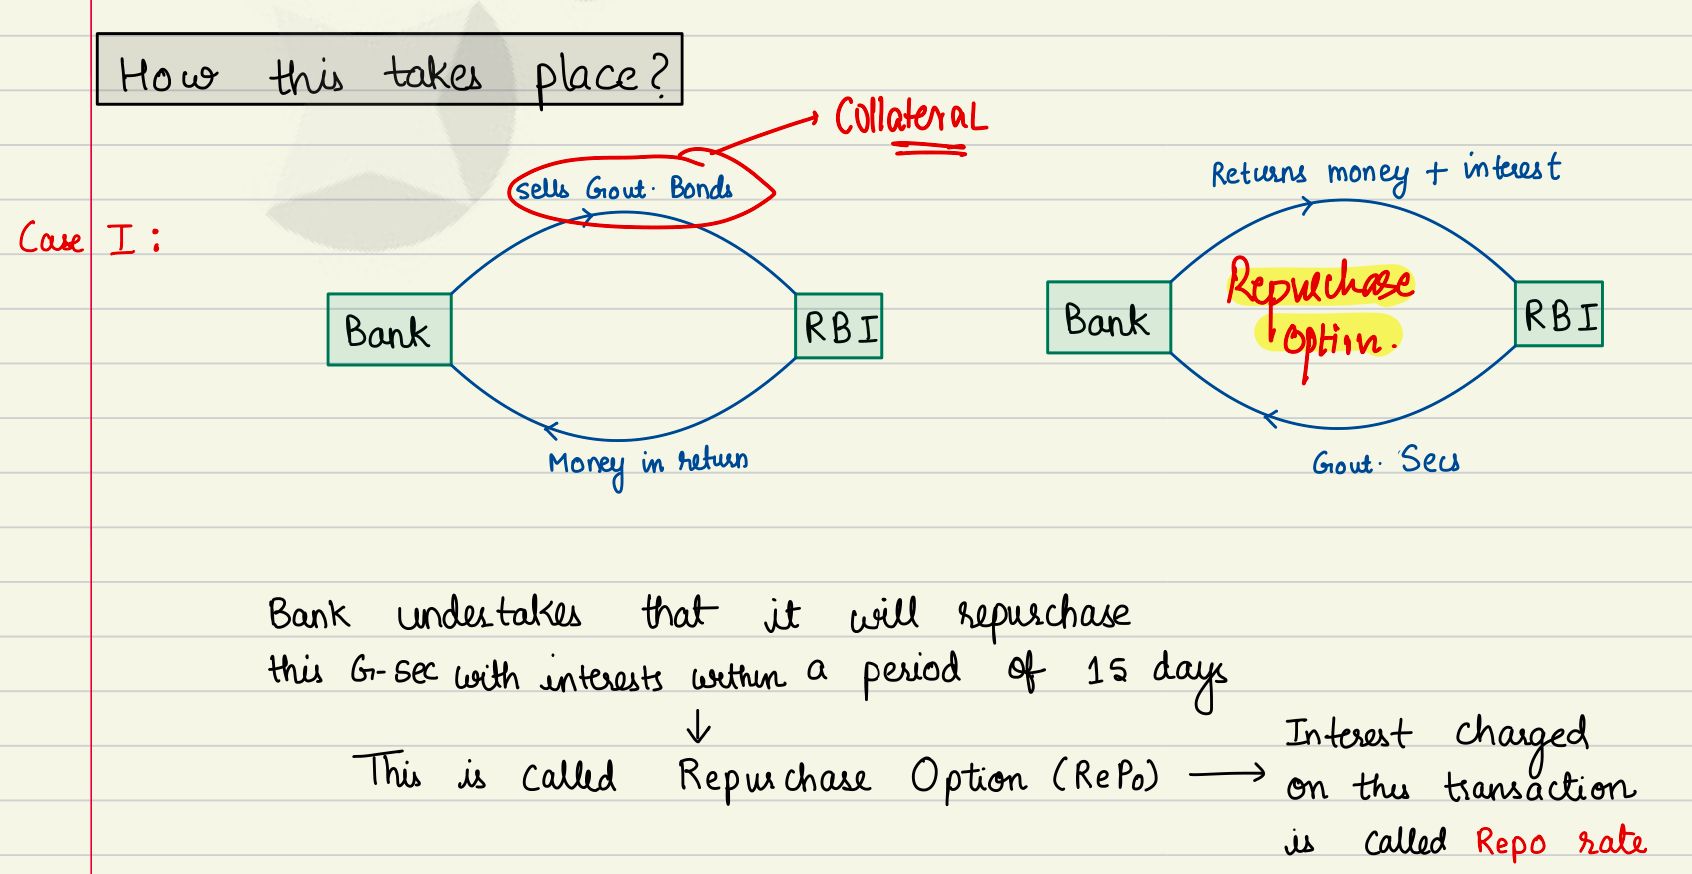 How this takes place?
Collateral
Sells Govt. Bonds
Returns money + interest
Case I :
Bank
RBI
Bank
Repurchase
option.
RBI
Money in return
Govt. Secs
Bank undertakes that it will repurchase
this G-Sec with interests within a period of 15 days
↓
This is called Repurchase Option (RePo) →
Interest charged
on this transaction
is called Repo rate